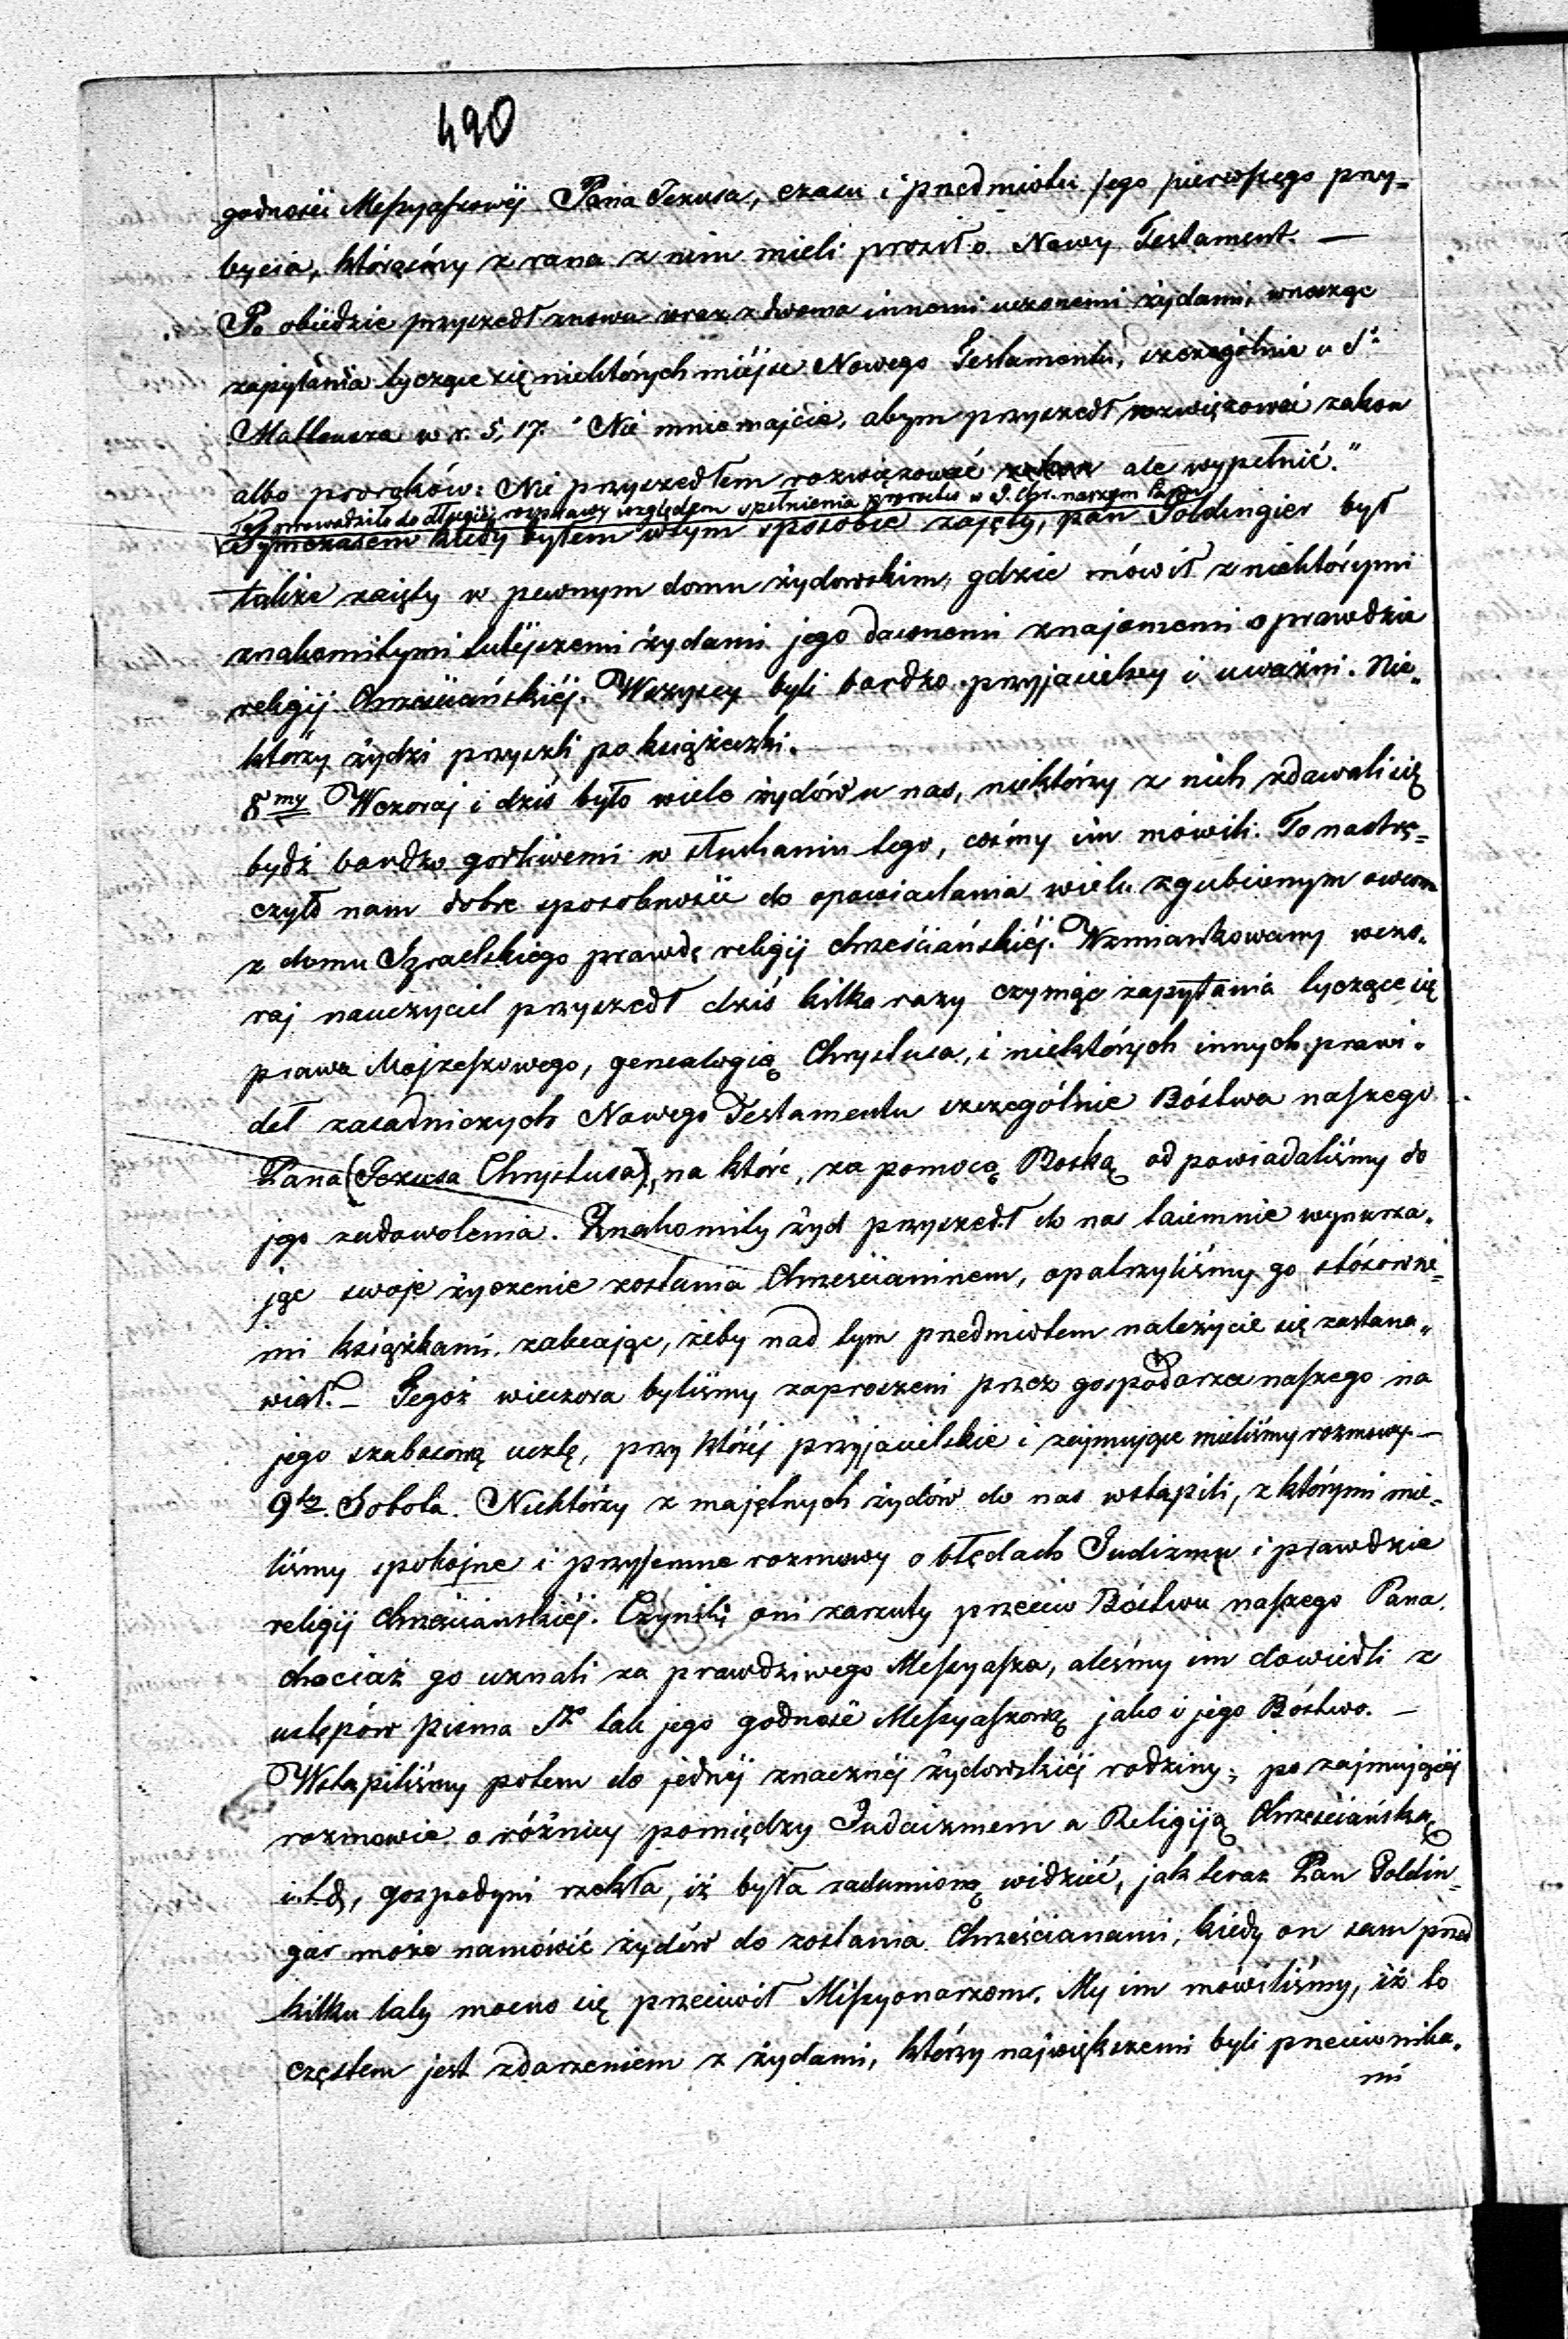 490
godności Meſzyaſzowéj Pana Jezusa, czasu i przedmiotu jego pierwſzego przy-
bycia, którąśmy z rana z nim mieli prosił o Nowy Testament. —
Po obiedzie przyszedł znowu wraz z dwoma innemi uczonemi żydami, wnosząc
zapytania tyczące się niektórych miéjsc Nowego Testamentu, szczególnie u Sº
Matteusza w r. 5, 17. "Nie mniemajcie, abym przyszedł rozwięzować zakon
albo proroków: Nie przyszedłem rozwięzować zakon ale wypełnić."
To prowadziło do długiéj rozprawy względem spełnienia proroctw w J. Chr. naszym Panu
Tymczasem kiedy byłem w tym sposobie zajęty, pan Goldingier był
także zaięty w pewnym domu żydowskim, gdzie mówił z niektórymi
znakomitymi tutéjszemi żydami jego dawnemi znajomemi o prawdzie
religij Chrześciańskiéj. Wszyscy byli bardzo przyjacielscy i uważni. Nie-
którzy żydzi przyszli po książeczki.
8my Wczoraj i dziś było wiele żydów u nas, niektórzy z nich zdawali się
bydź bardzo gorliwemi w słuchaniu tego, cośmy im mówili. To nastrę-
czyło nam dobre sposobności do opowiadania wielu zgubionym owcom
z domu Izraelskiego prawdę religij chrześciańskiéj. Wzmiankowany wczo-
raj nauczyciel przyszedł dziś kilka razy czyniąc zapytania tyczące się
prawa Mojżeſzowego, genealogią Chrystusa, i niektórych innych prawi-
deł zasadniczych Nowego Testamentu szczególnie Bóstwa naſzego
Pana (Jezusa Chrystusa), na które, za pomocą Boską odpowiadaliśmy do
jego zadowolenia. Znakomity żyd przyszedł do nas taiemnie wynurza-
jąc swoje życzenie zostania Chrześcianinem, opatrzyliśmy go stósowne-
mi książkami, zalecając, żeby nad tym przedmiotem należycie się zastana-
wiał. — Tegóż wieczora byliśmy zaproszeni przez gospodarza naſzego na
jego szabasową ucztę, przy któréj przyjacielskie i zajmujące mieliśmy rozmowy. —
9ta. Sobota. Niektórzy z majętnych żydów do nas wstąpili, z którymi mie-
liśmy spokojne i przyjemne rozmowy o błędach Judizmu i prawdzie
religij chrześcianskiéj. Czynili oni zarzuty przeciw Bóstwu naſzego Pana,
chociaż go uznali za prawdziwego Meſzyaſza, aleśmy im dowiedli z
ustępów pisma Sgo tak jego godność Meſzyaſzową jako i jego Bóstwo. —
Wstąpiliśmy potem do jednéj znacznéj żydowskiéj rodziny; po zajmującéj
rozmowie o różnicy pomiędzy Judaizmem a Religiją Chrześciańską
i.t.d, gospodyni rzekła, iż była zadumioną widzieć, jak teraz Pan Goldin-
gár może namówić żydów do zostania Chrześcianami, kiedy on sam przed
kilku laty mocno się przeciwił Miſzyonarzom. My im mówiliśmy, iż to
częstem jest zdarzeniem z żydami, którzy największemi byli przeciwnika-
mi